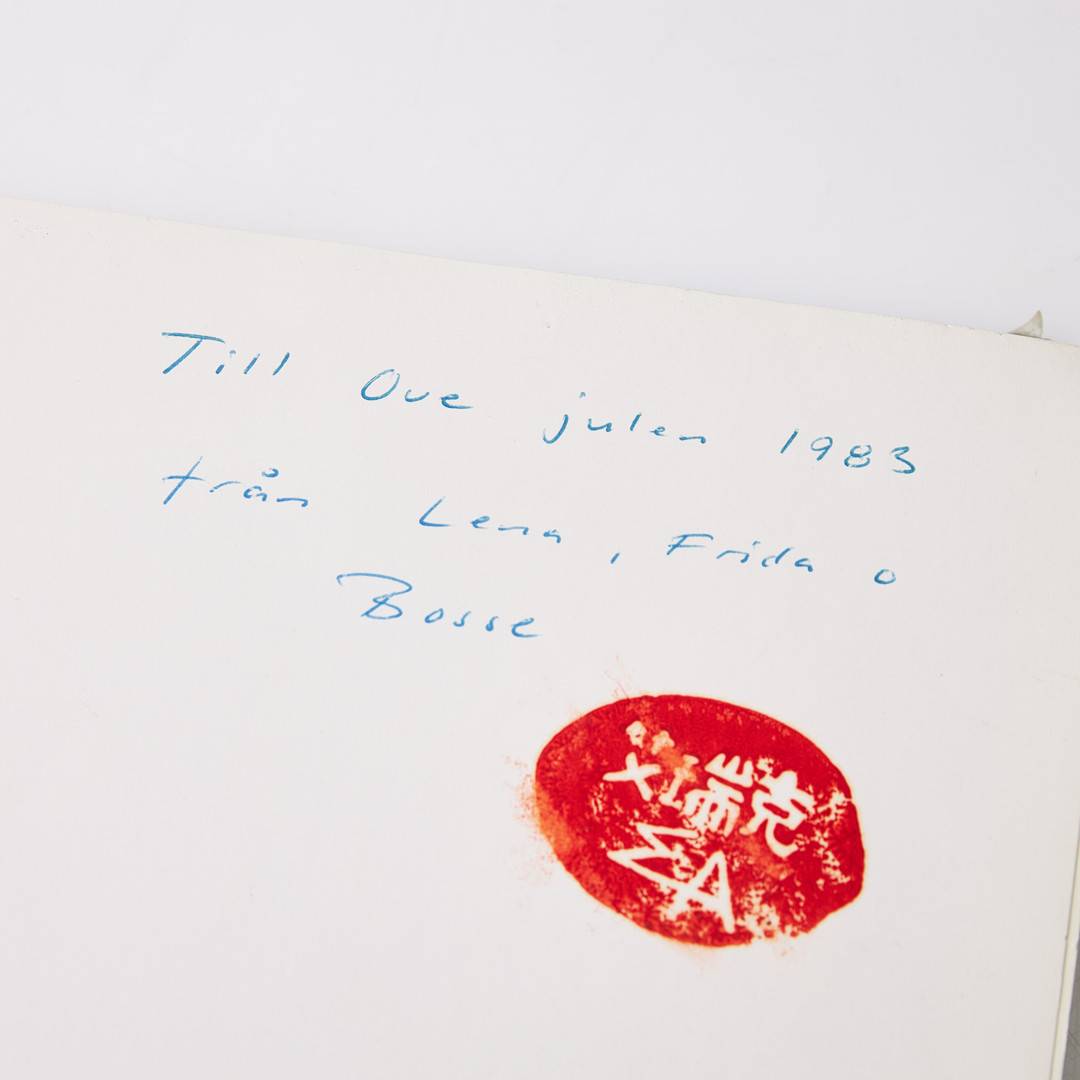 Till Ove julen 1983
från Lena, Frida o
Bosse
瑞克